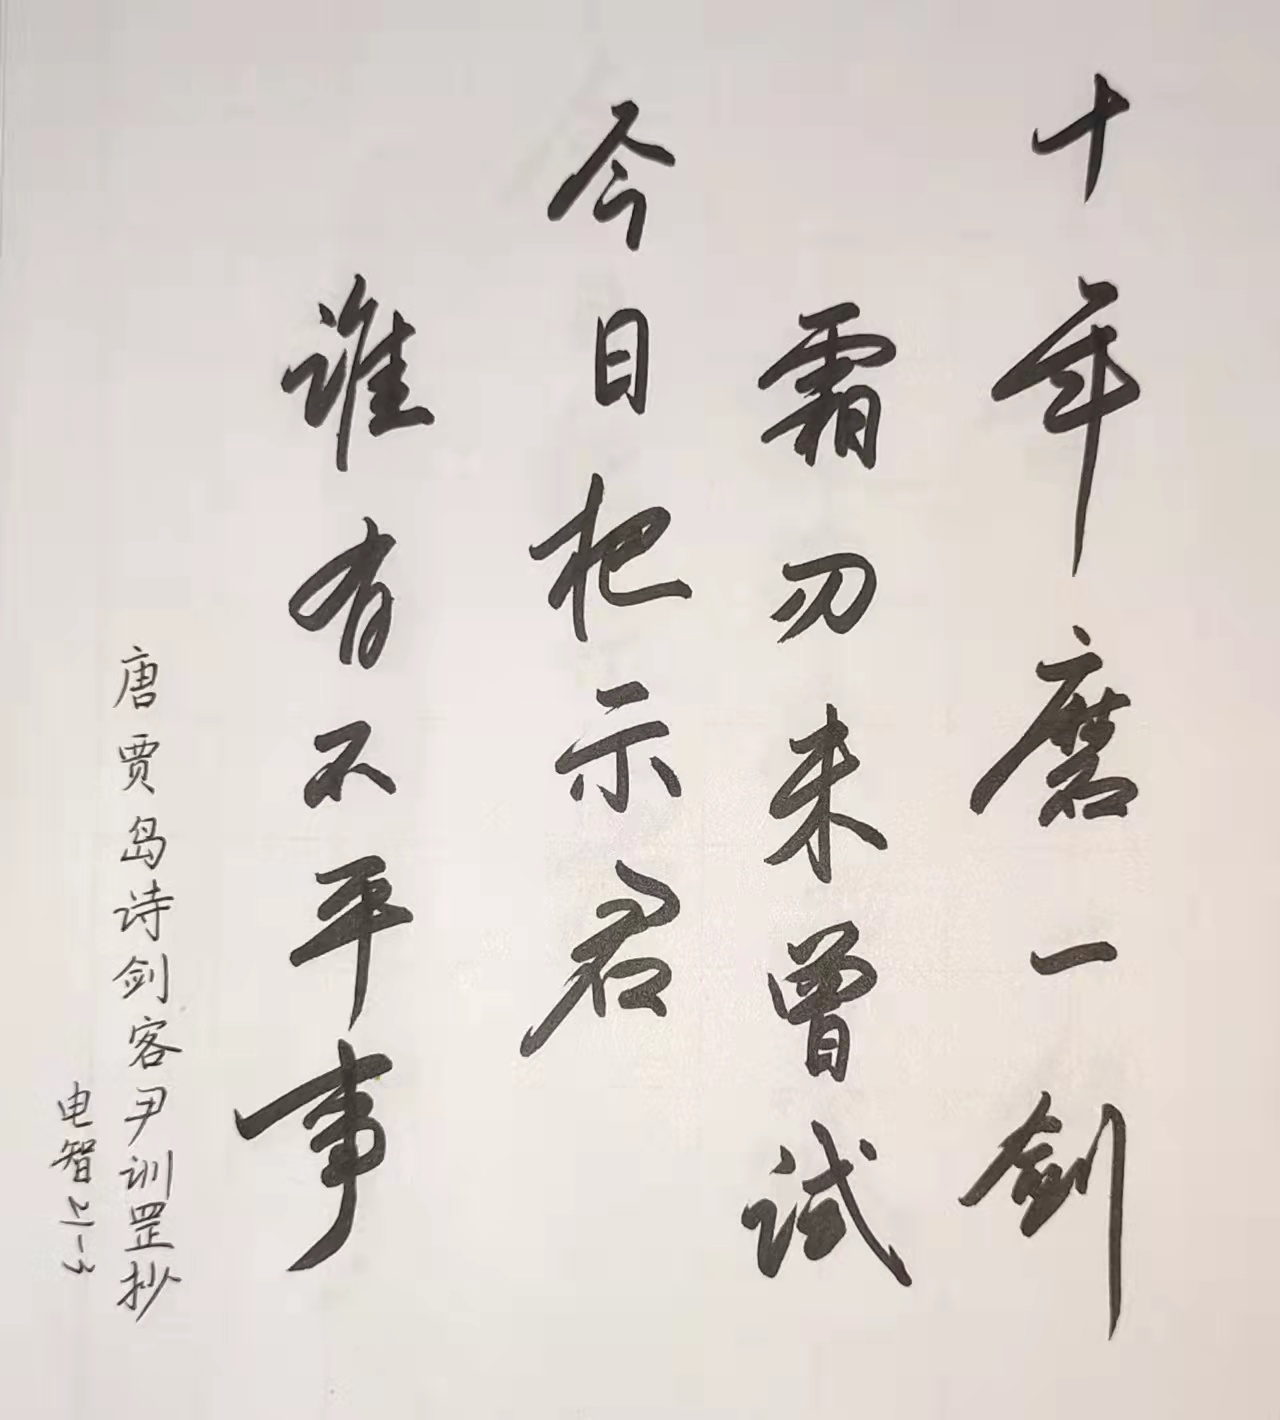 十年磨一剑
霜刃未曾试
今日把示君
谁有不平事
唐贾岛诗剑客尹训罡抄
电智21-3